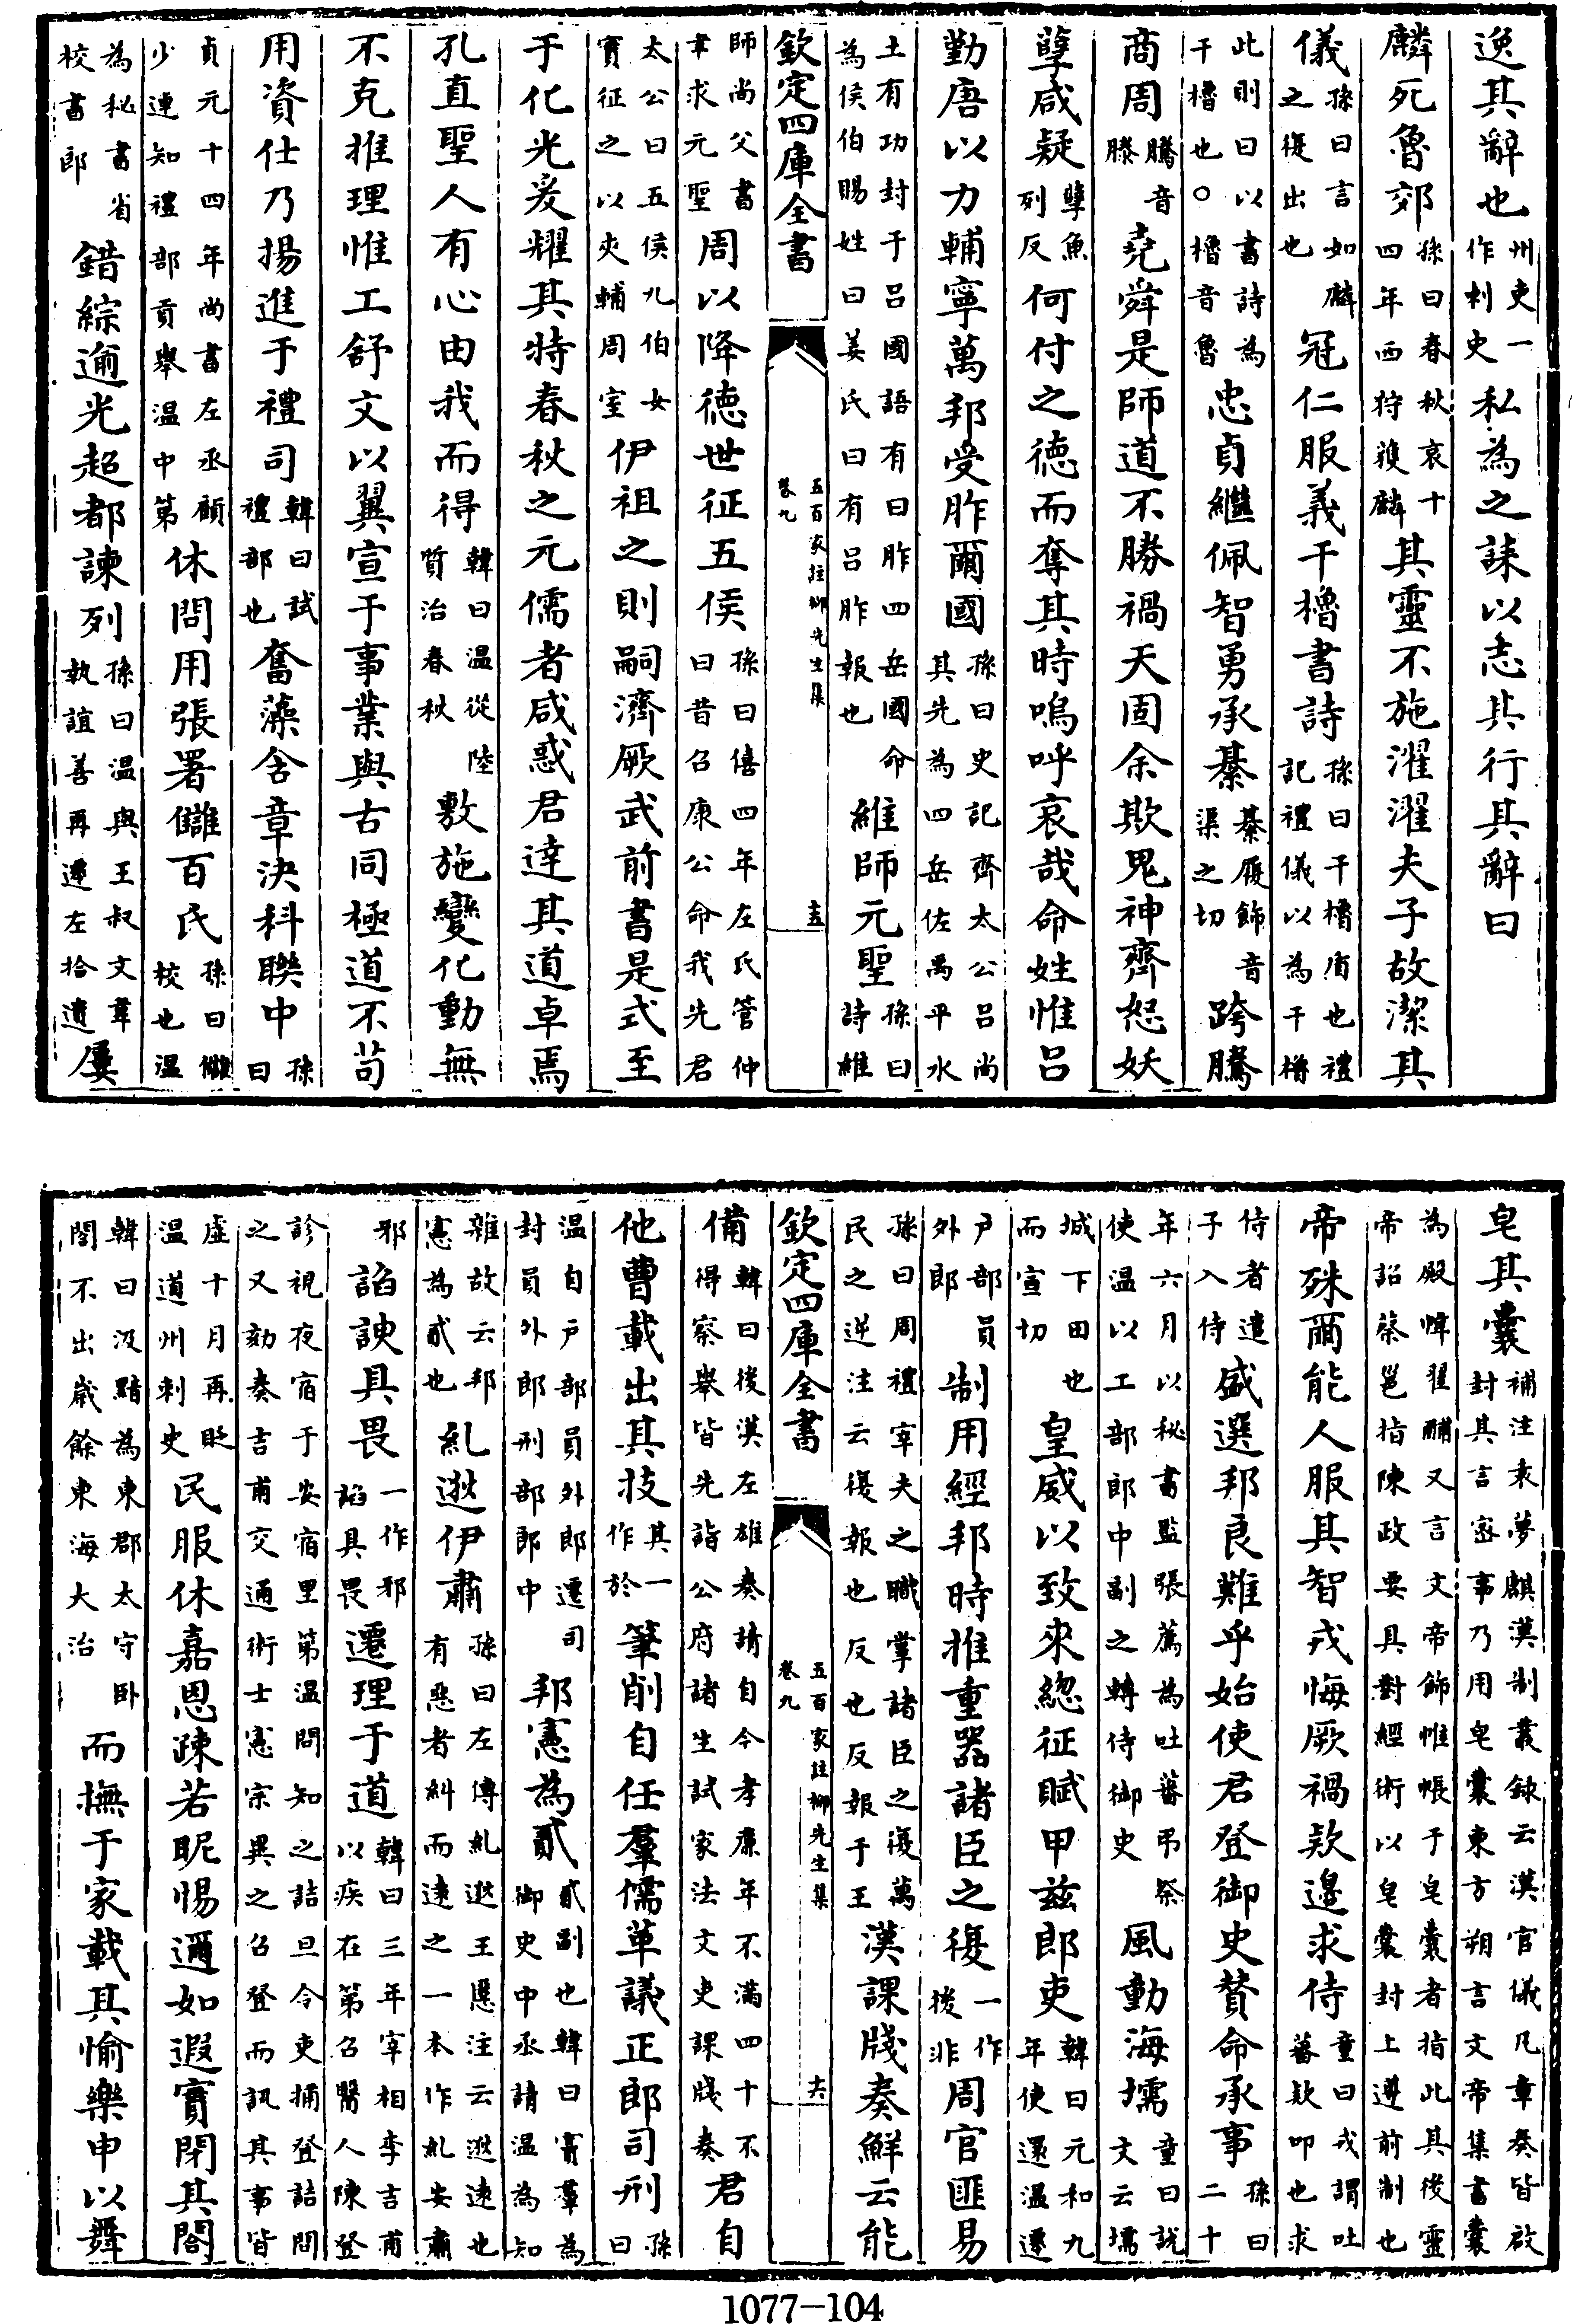 逸其辭也州吏一作刺史私為之誄以志其行其辭曰
麟死魯郊孫曰春秋哀十四年西狩獲麟其靈不施濯濯夫子故潔其
儀孫曰言如麟之復出也冠仁服義干櫓書詩孫曰干櫓盾也禮記禮儀以為干櫓
此則曰以書詩為干櫓也○櫓音魯忠貞繼佩智勇承綦綦履飾音渠之切跨騰
商周騰音滕堯舜是師道不勝禍天固余欺鬼神齊怒妖
孽咸疑孽魚列反何付之德而奪其時嗚呼哀哉命姓惟呂
勤唐以力輔寧萬邦受胙爾國孫曰史記齊太公呂尚其先為四岳佐禹平水
土有功封于呂國語有曰胙四岳國命為侯伯賜姓曰姜氏曰有呂胙報也維師元聖孫曰詩維
欽定四庫全書 五百家註柳先生集 卷九 十五
師尚父書聿求元聖周以降德世征五侯孫曰僖四年左氏管仲曰昔召康公命我先君
太公曰五侯九伯女實征之以夾輔周室伊祖之則嗣濟厥武前書是式至
于化光爰耀其特春秋之元儒者咸惑君達其道卓焉
孔直聖人有心由我而得韓曰温從陸質治春秋敷施變化動無
不克推理惟工舒文以翼宣于事業與古同極道不苟
用資仕乃揚進于禮司韓曰試禮部也奮藻含章決科聯中孫曰
貞元十四年尚書左丞顧少連知禮部貢舉温中第休問用張署讎百氏孫曰讎校也温
為秘書省校書郎錯綜逾光超都諫列孫曰温與王叔文韋執誼善再遷左拾遺屢
皂其囊補注宋夢麒漢制叢録云漢官儀凡章奏皆啟封其言密事乃用皂囊東方朔言文帝集書囊
為殿幃翟酺又言文帝飾帷帳于皂囊者指此其後靈帝詔蔡邕指陳政要具對經術以皂囊封上遵前制也
帝殊爾能人服其智戎悔厥禍款邊求侍童曰戎謂吐蕃款叩也求
侍者遣子入侍盛選邦良難乎始使君登御史贊命承事孫曰二十
年六月以秘書監張薦為吐蕃弔祭使温以工部郎中副之轉侍御史風動海壖童曰説文云壖
城下田也而宣切皇威以致來緫征賦甲兹郎吏韓曰元和九年使還温遷
户部員外郎制用經邦時推重器諸臣之復一作後非周官匪易
孫曰周禮宰夫之職掌諸臣之復萬民之逆注云復報也反也反報于王漢課牋奏鮮云能
欽定四庫全書 五百家註柳先生集 卷九 十六
備韓曰後漢左雄奏請自今孝廉年不滿四十不得察舉皆先詣公府諸生試家法文吏課牋奏君自
他曹載出其技其一作於筆削自任羣儒革議正郎司刑孫曰
温自户部員外郎遷司封員外郎刑部郎中邦憲為貳貳副也韓曰竇羣為御史中丞請温為知
雜故云邦憲為貳也糺逖伊肅孫曰左傳糺逖王慝注云逖遠也有惡者糾而遠之一本作糺安肅
邪諂諛具畏一作邪諂具畏遷理于道韓曰三年宰相李吉甫以疾在第召醫人陳登
診視夜宿于安宿里第温問知之詰旦令吏捕登詰問之又劾奏吉甫交通術士憲宗異之召登而訊其事皆
虛十月再貶温道州刺史民服休嘉恩疎若昵惕邇如遐實閉其閤
韓曰汲黯為東郡太守卧閤不出歲餘東海大治而撫于家載其愉樂申以舞
1077—104